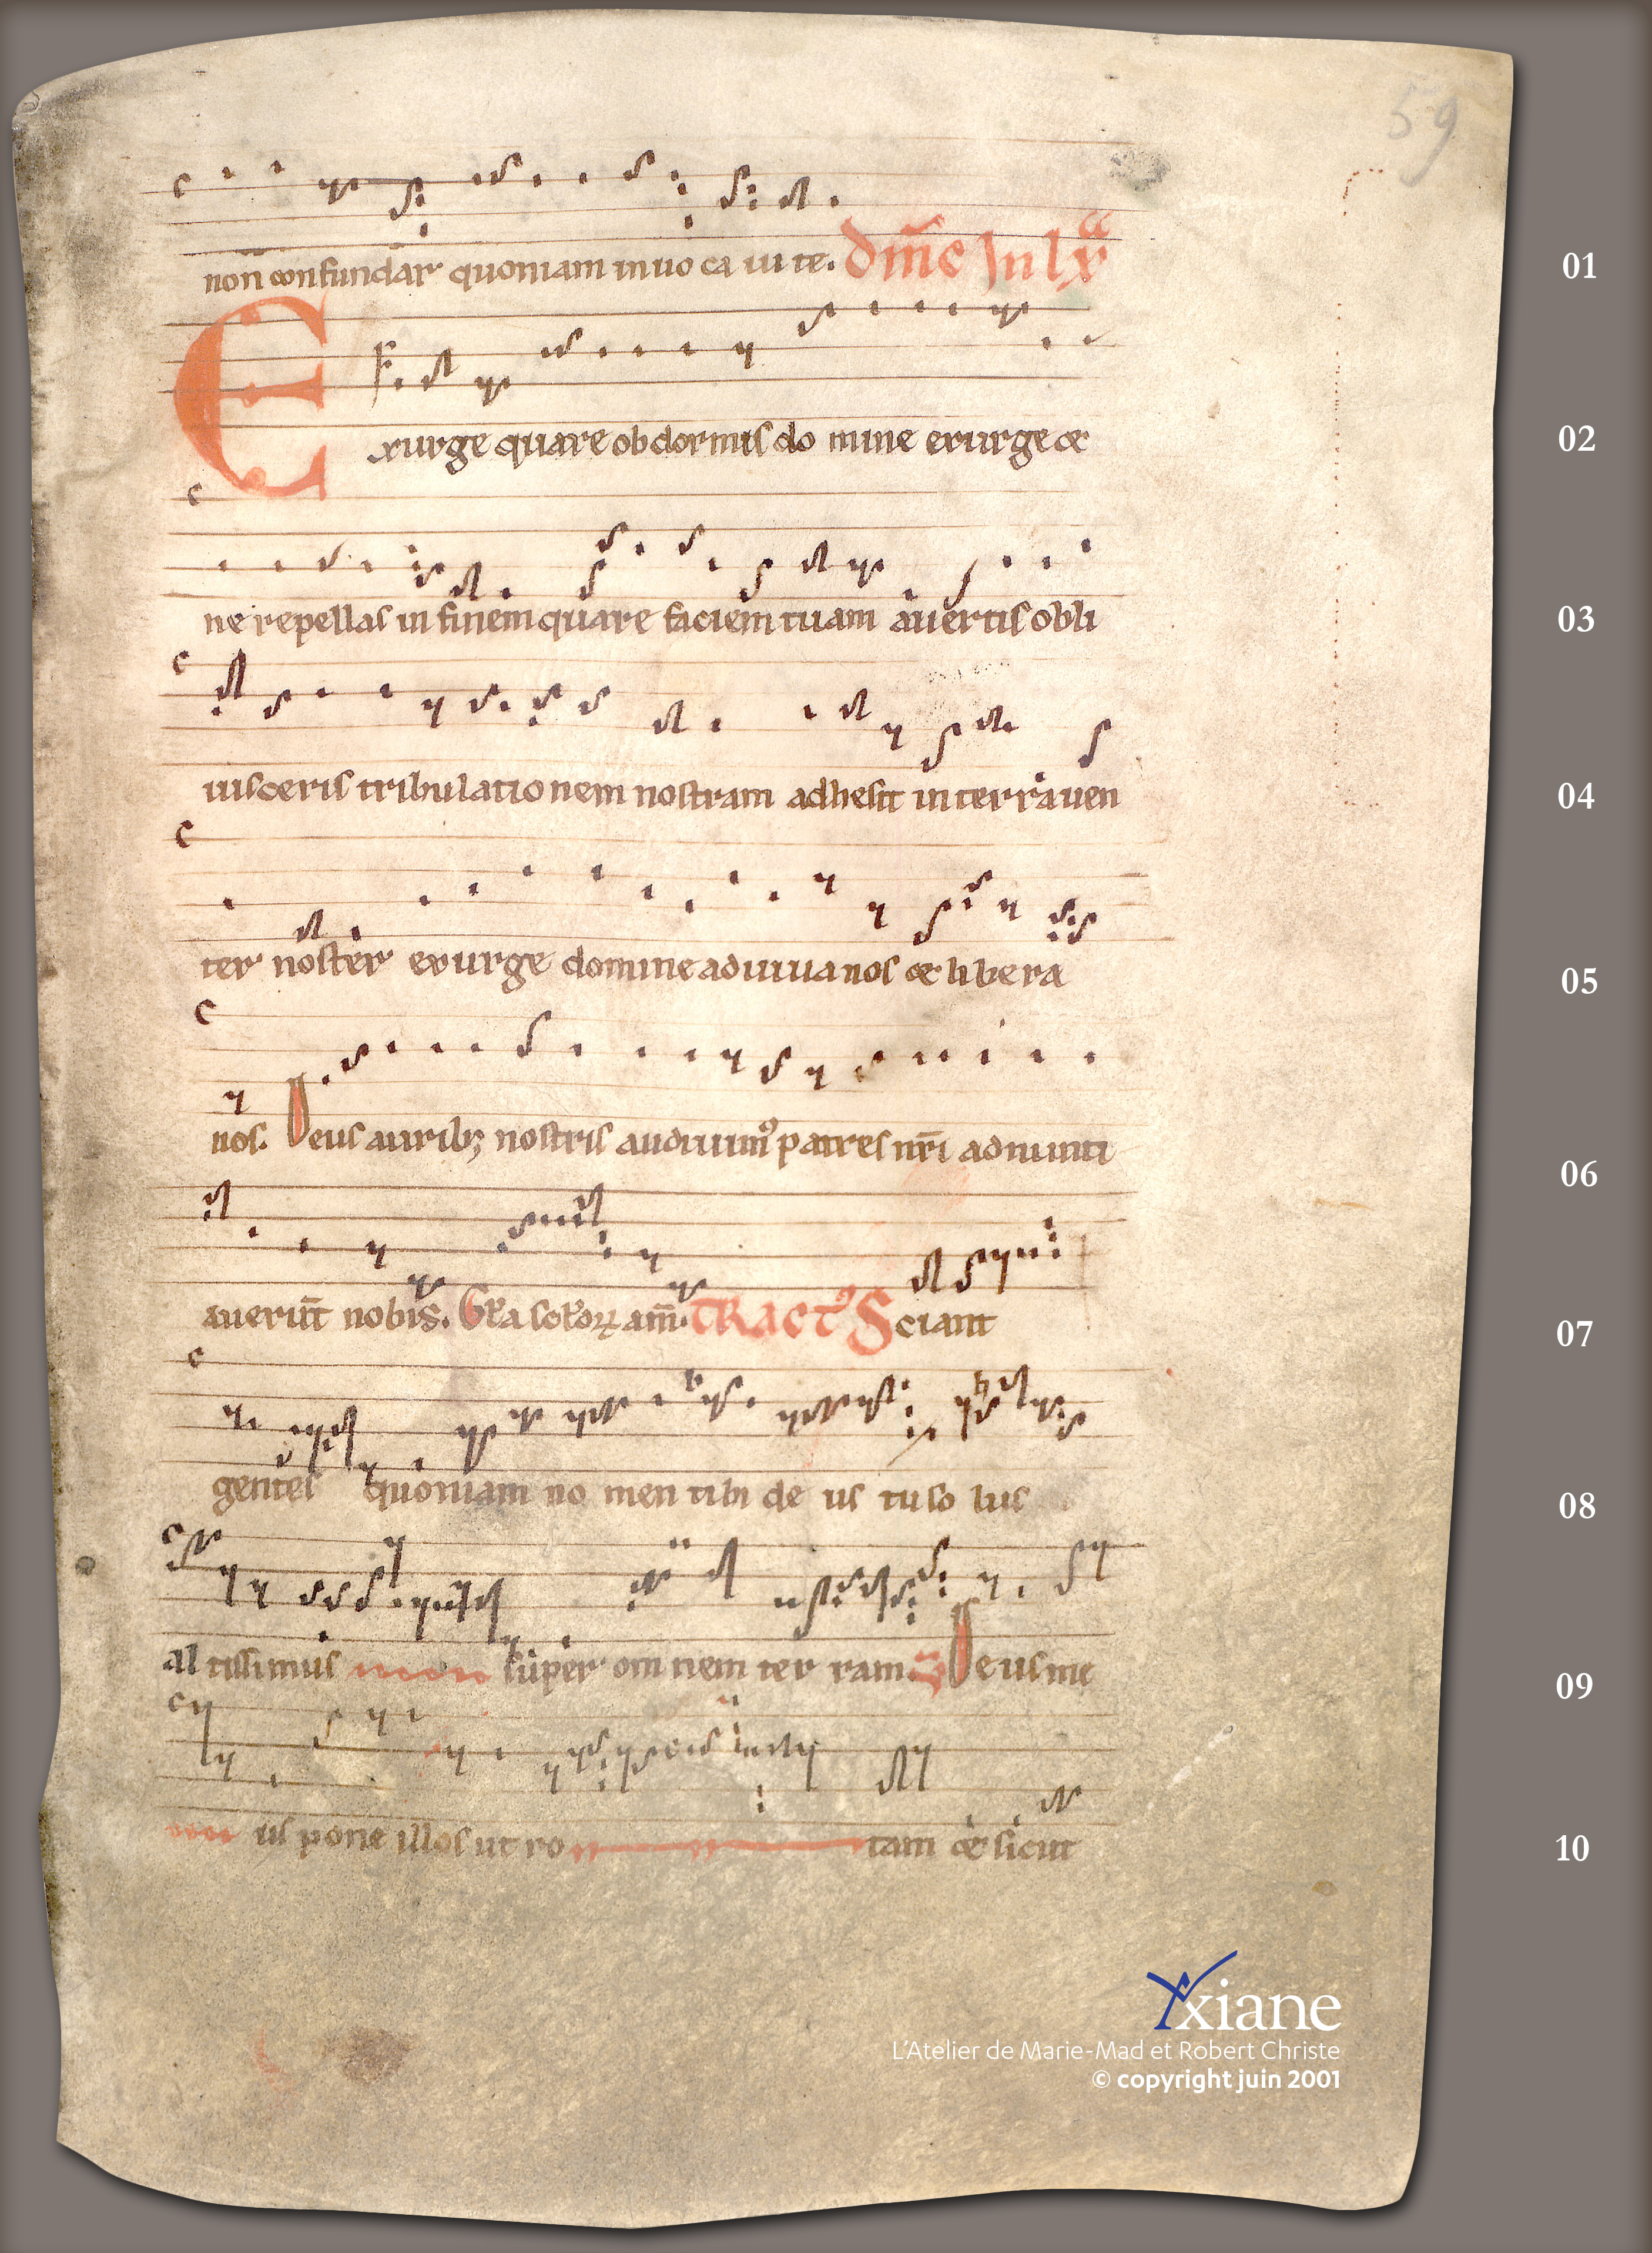 59
non confundar quoniam inuo ca ui te. Dm̄c In lxª
01
Exurge quare obdormis do mine exurge &
02
ne repellas in finem quare faciem tuam auertis obli
03
uisceris tribulatio nem nostram adhesit in terra uen
04
ter noster exurge domine adiuua nos & libera
05
nos. Deus aurib; nostris audiuim᷒ patres nr̄i adnunti
06
auerun̄t nobis. Gl̄a sclōꝝ am̄. TRACT᷒ Sciant
07
gentes quoniam no men tibi de us tu so lus
08
al tissimus super om nem ter ram. Deus me
09
us pone illos ut ro tam & sicut
10
xiane
L'Atelier de Marie-Mad et Robert Christe
© copyright juin 2001